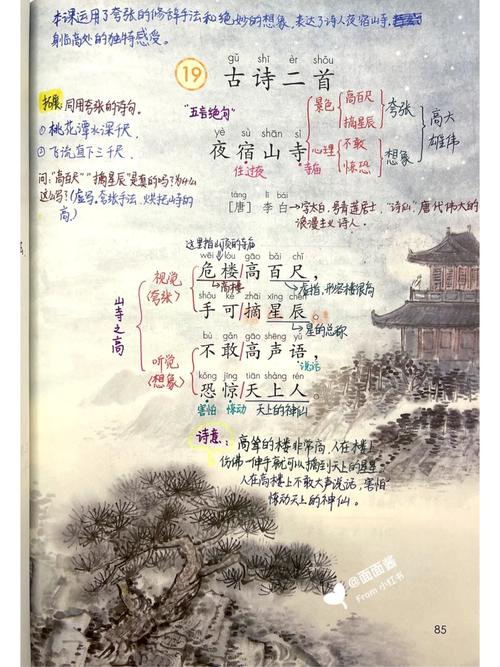 本课运用了夸张的修辞手法和绝妙的想象,表达了诗人夜宿山寺,
身临高处的独特感受。
gǔ shī èr shǒu
19 古诗二首
拓展:同用夸张的诗句。
①桃花潭水深千尺,
②飞流直下三千尺,
问:“高百尺”“摘星辰”是真的吗?为什么
这么写?(虚写,夸张手法,烘托山寺的
高)
“五言绝句”
景色 高百尺 摘星辰 夸张
心理 不敢 惊恐 想象
高大
雄伟
yè sù shān sì
夜宿山寺
住过夜 寺庙
táng lǐ bái
[唐] 李白
字太白,号青莲居士,“诗仙”,唐代伟大的
浪漫主义诗人。
这里指山顶的寺庙
山寺之高
视觉
(夸张)
wēi lóu gāo bǎi chǐ
危楼/高百尺,
高楼 虚指,形容楼很高
shǒu kě zhāi xīng chén
手可/摘星辰。
星的总称
听觉
(想象)
bù gǎn gāo shēng yǔ
不敢/高声语,
说话
kǒng jīng tiān shàng rén
恐惊/天上人。
害怕 惊动 天上的神仙
诗意:高耸的楼非常高,人在楼上
仿佛一伸手就可以摘到天上的星星。
人在高楼上不敢大声说话,害怕
惊动天上的神仙。
@面面酱
From 小红书
85